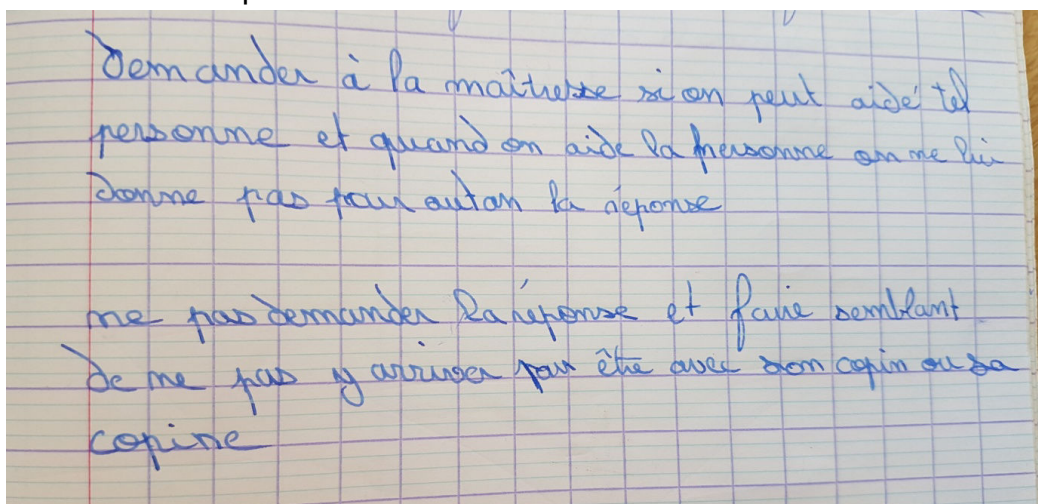 Demander à la maîtresse si on peut aidé tel
personne et quand on aide la personne on ne lui
donne pas pour autan la réponse
ne pas demander la réponse et faire semblant
de ne pas y arriver pour être avec son copin ou sa
copine